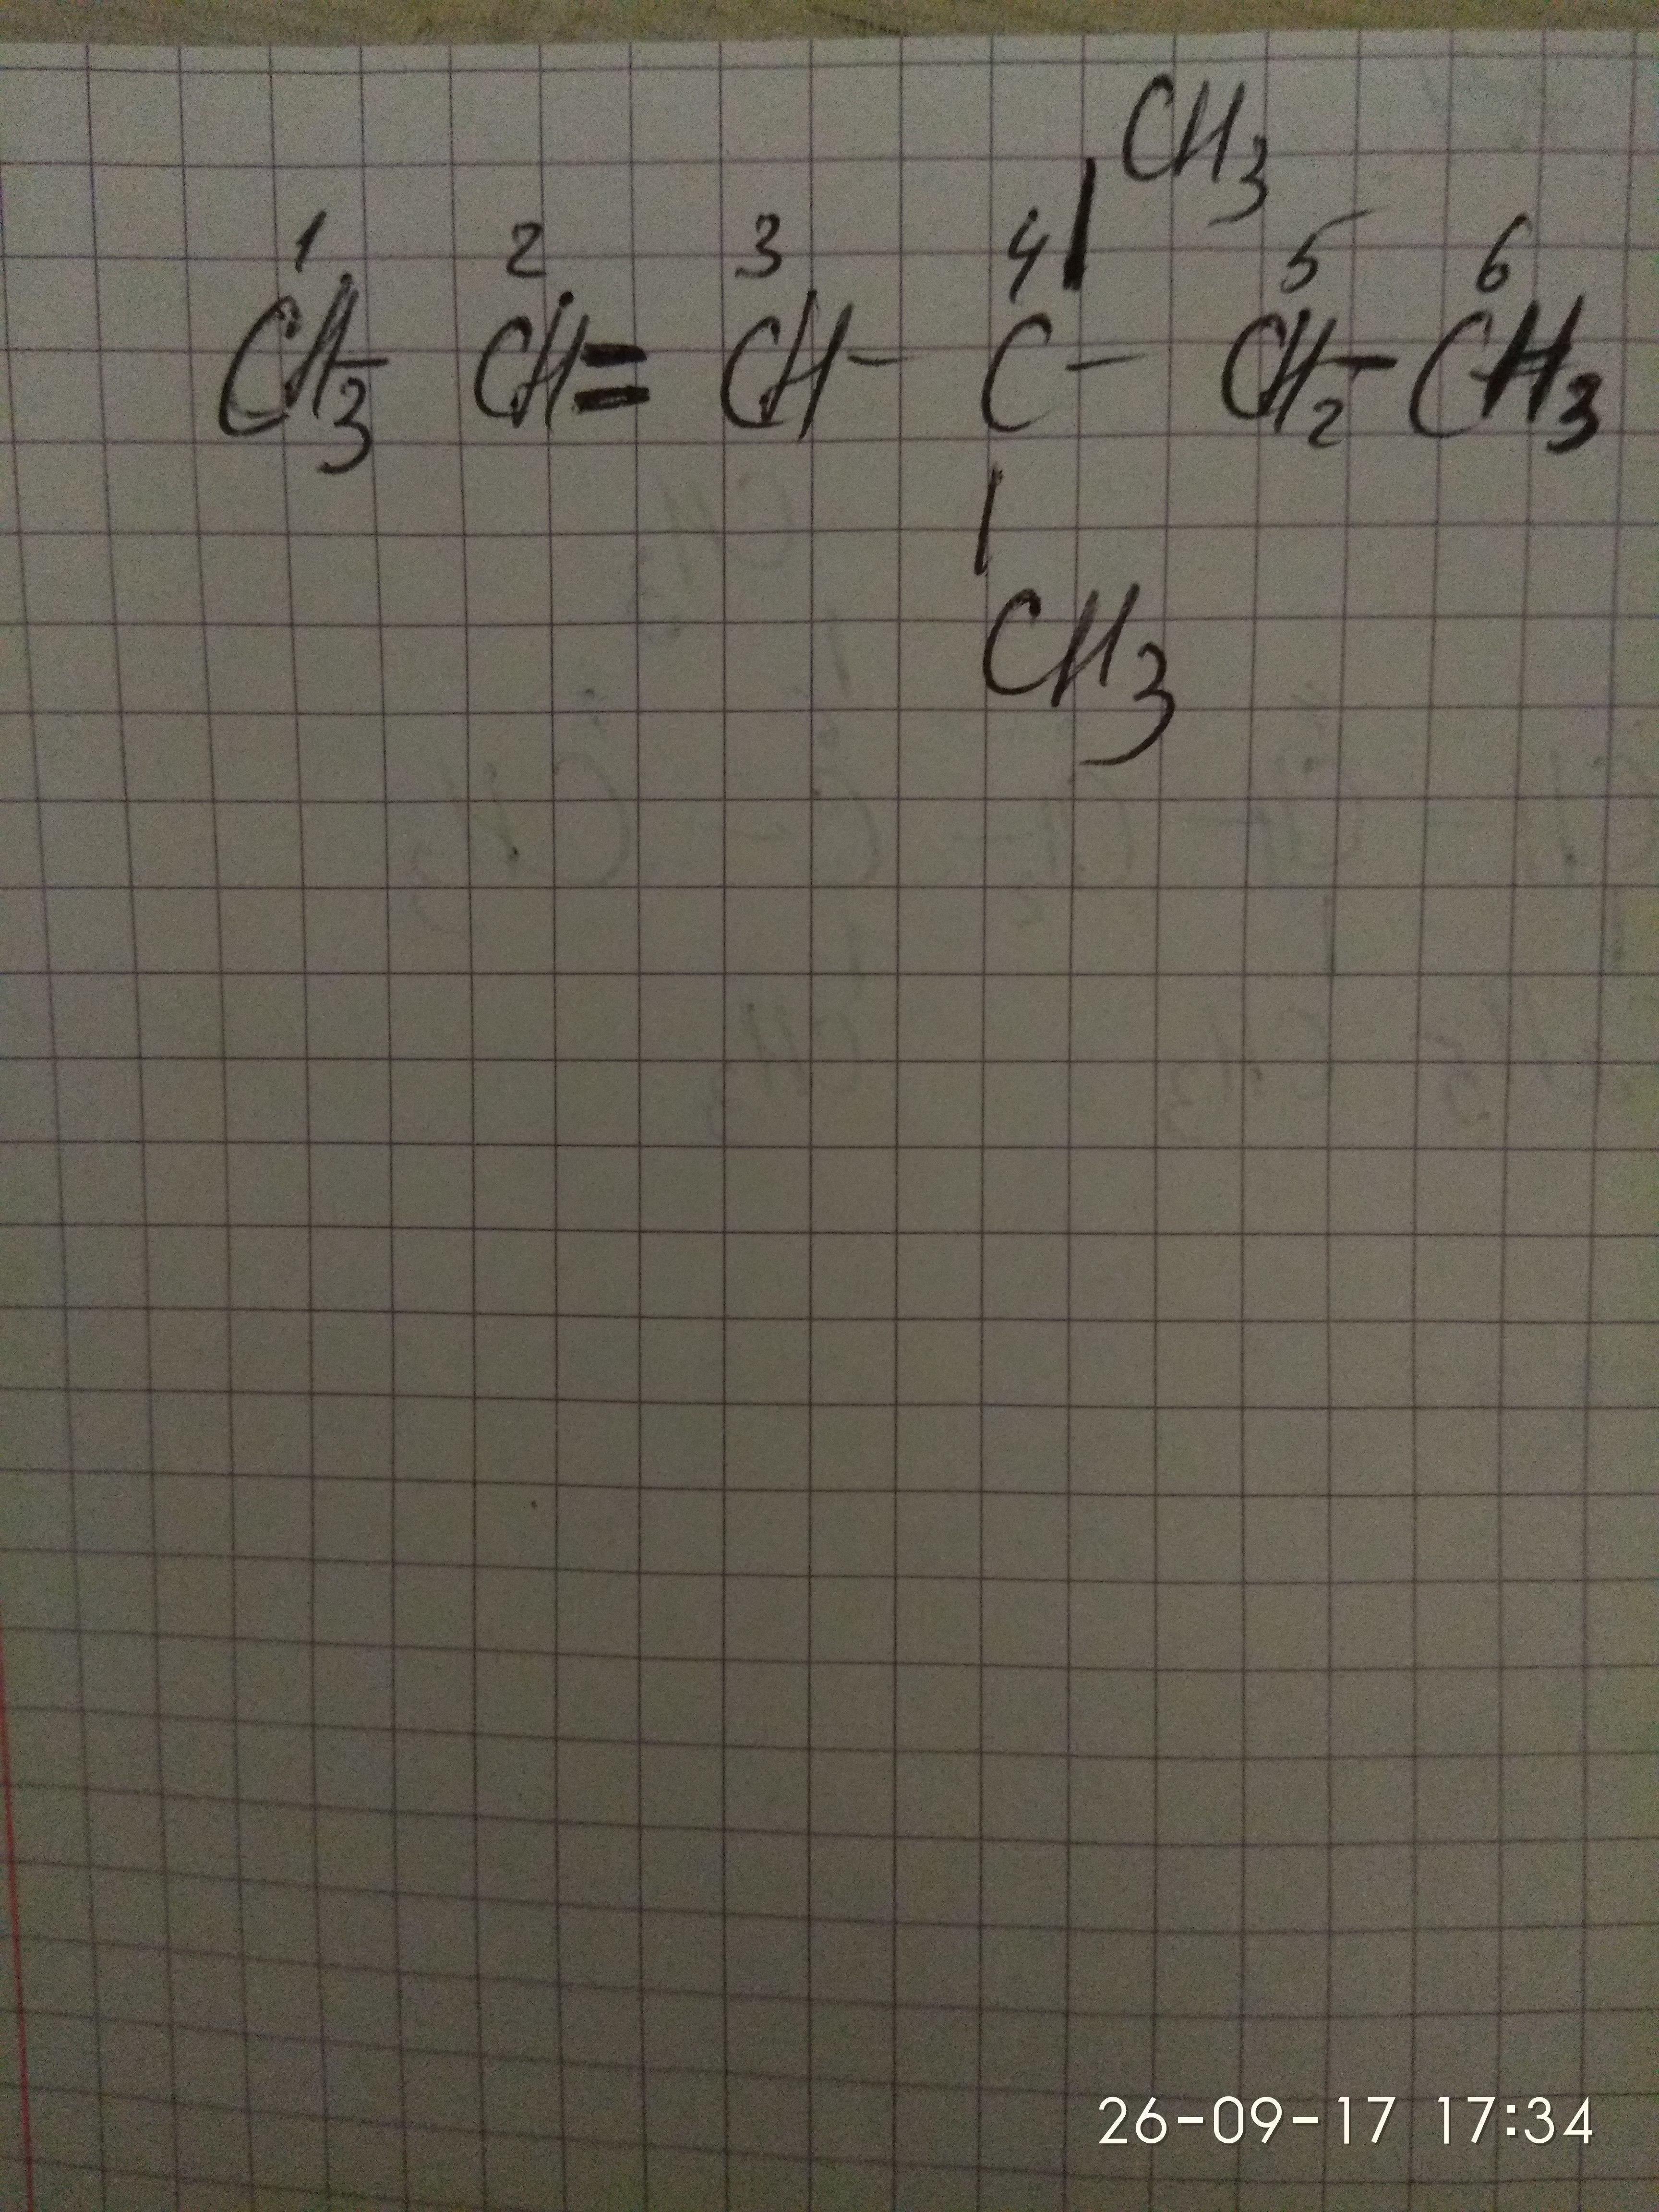 CH3
1 2 3 4 5 6
CH3- CH= CH- C- CH2-CH3
CH3
26-09-17 17:34